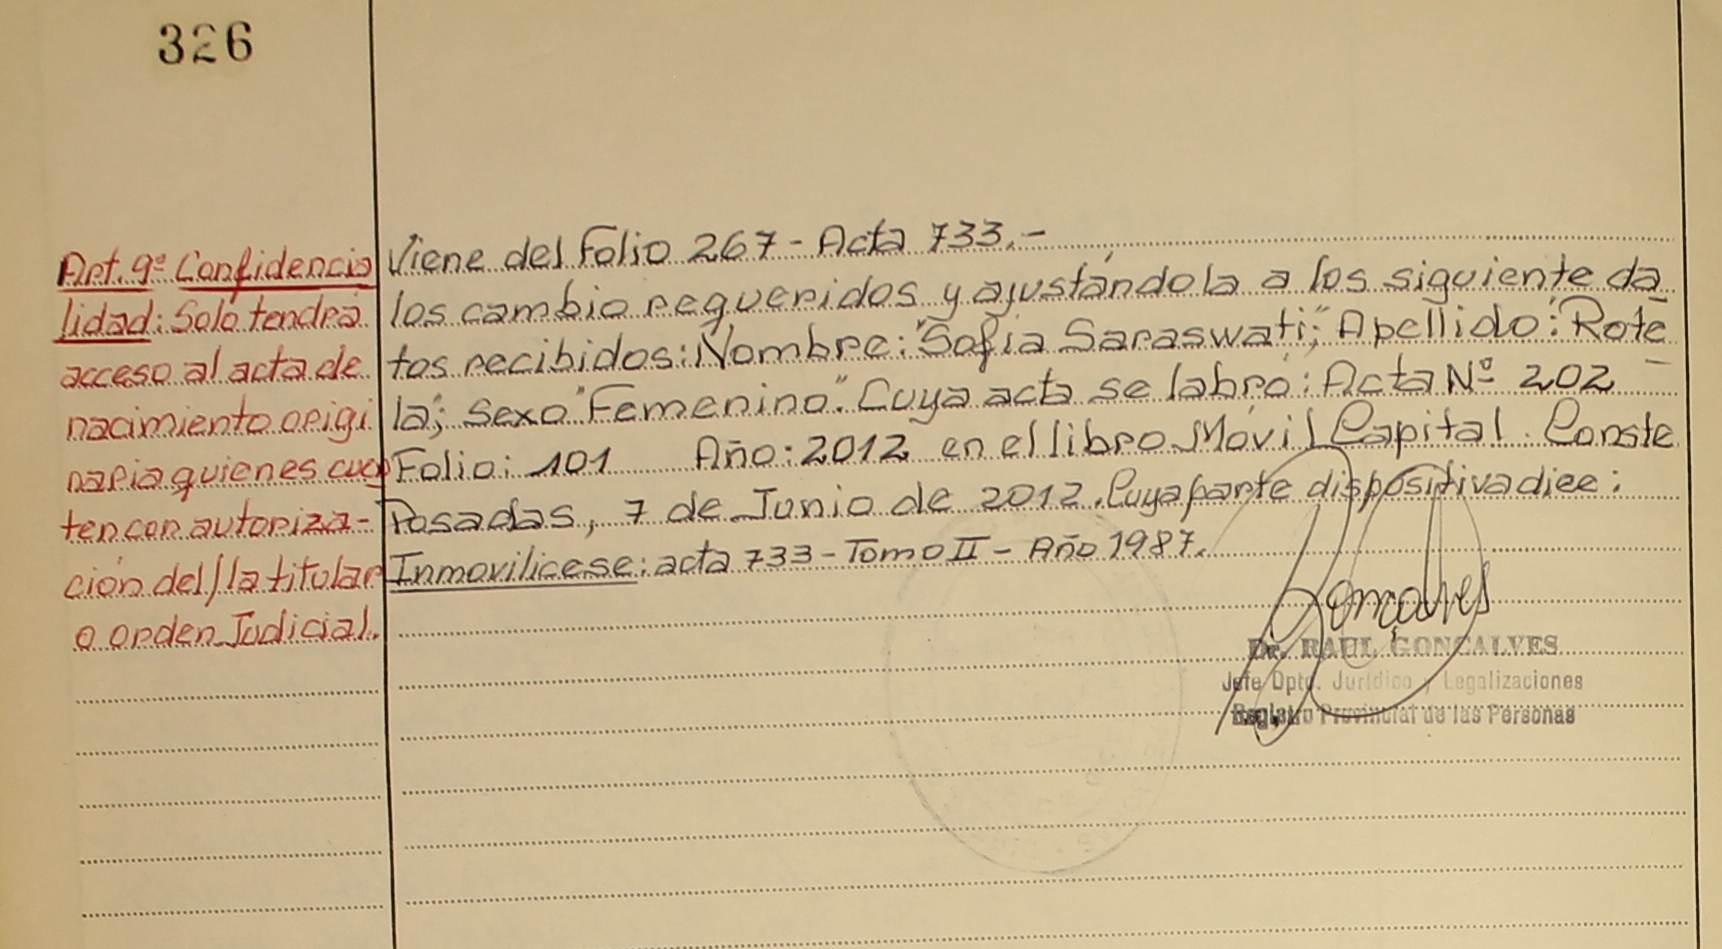 326
Art. 9º Confidencia
lidad: Solo tendrá
acceso al acta de
nacimiento origi
naria quienes cuen
ten con autoriza-
ción del/la titular
o orden Judicial.
Viene del Folio 267 - Acta 733.-
los cambio requeridos y ajustándola a los siguiente da
tos recibidos: Nombre: "Sofía Saraswati"; Apellido: "Rote
la"; Sexo "Femenino". Cuya acta se labró: Acta Nº 202
Folio: 101 Año: 2012 en el libro Móvil Capital. Conste
Posadas, 7 de Junio de 2012. Cuya parte dispositiva dice:
Inmovilicese: acta 733 - Tomo II - Año 1987.
Gonçalves
Dr. RAUL GONCALVES
Jefe Dpto. Jurídico y Legalizaciones
Registro Provincial de las Personas